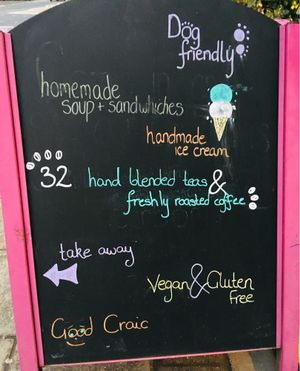 Dog
friendly
homemade
soup + sandwhiches
handmade
ice cream
32 hand blended teas &
freshly roasted coffee
take away
Vegan & Gluten
Free
Good Craic